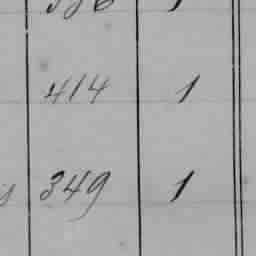 414 1
349 1